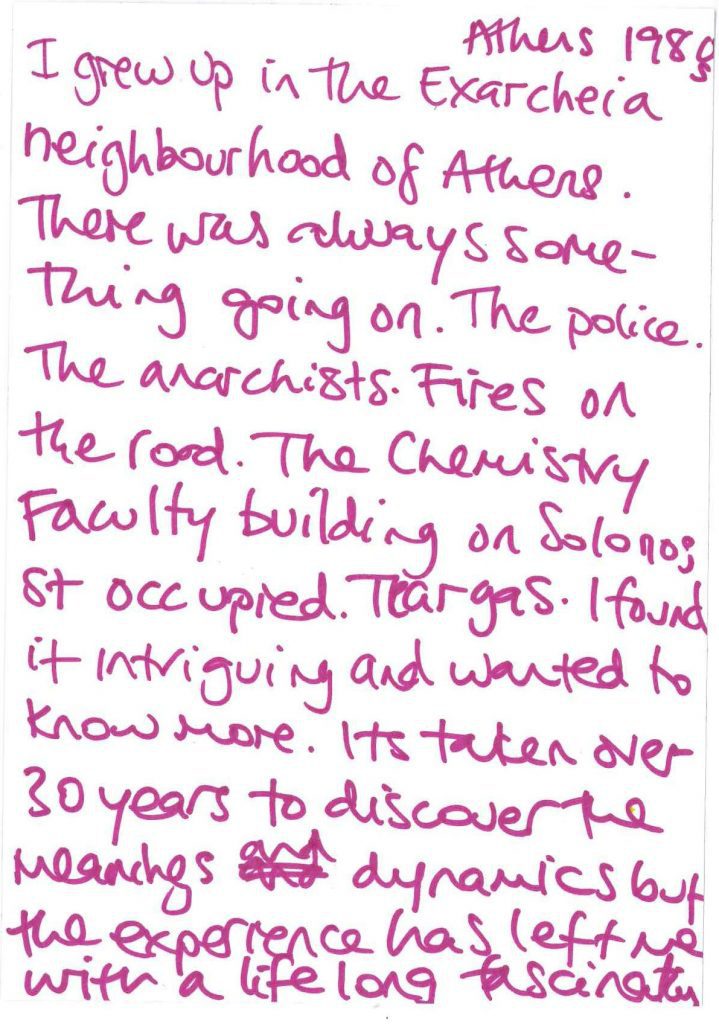 Athens 1980s
I grew up in the Exarcheia
neighbourhood of Athens.
There was always some-
thing going on. The police.
The anarchists. Fires on
the road. The Chemistry
Faculty building on Solonos
st occupied. Teargas. I found
it intriguing and wanted to
know more. Its taken over
30 years to discover the
meanings and dynamics but
the experience has left me
with a life long fascination